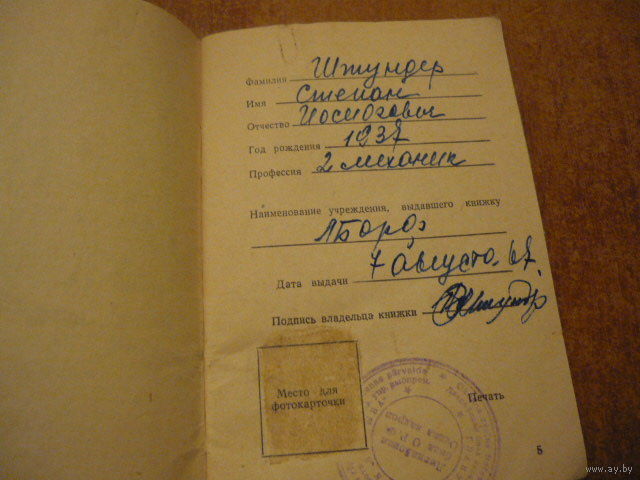 Фамилия Штундер
Имя Степан
Отчество
Год рождения 1937
Профессия 2 механик
Наименование учреждения, выдавшего книжку
Дата выдачи 7 августа 67.
Подпись владельца книжки
Место для
фотокарточки
Печать
5
www.ay.by